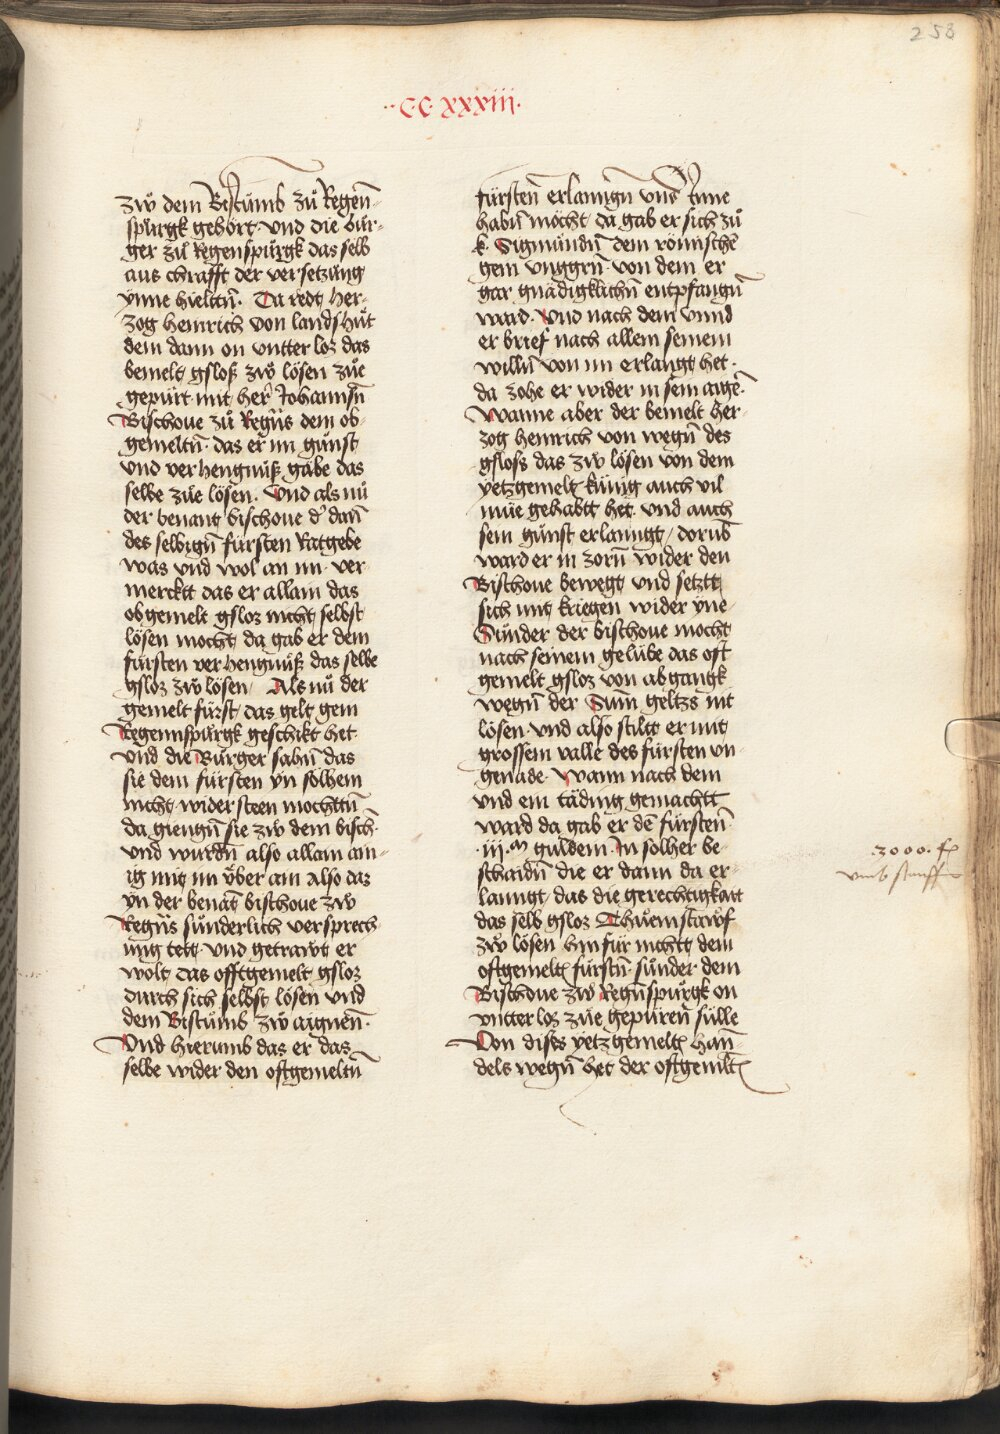 258
·CC xxxiii·
zẘ dem Bistumb zů Regen̄
spůrgk gehört und die bur-
ger zů Regenspůrgk das selb
aus chrafft der versetzung
ynne hieltn̄. Da redt her-
zog heinrich von landshůt
dem dann on untter los das
bemelt gsloß zẘ lösen zůe
gepürt mit her Johannsn̄
Bischove zů Regn̄s dem ob
gemeltn̄. das er im gunst
und verhengnuß gäbe das
selbe zůe lösen. Und als nů
der benant bischove d' dan̄
des selbign̄ fürsten Ratgebe
was und wol an im ver
merckt das er allain das
obgemelt gsloz nicht selbst
lösen mocht da gab er dem
fürsten verhengnuß das selbe
gsloz zẘ lösen / Als nů der
gemelt fürst das gelt gem
Regennspůrgk geschikt het
und die Burger sahn̄ das
sie dem fürsten yn solhem
nicht wider steen mochttn̄
da giengn̄ sie zẘ dem bisch
und wurdn̄ also allain ain-
ig mit im über ain Also daz
yn der benāt bischove zẘ
Regn̄s sunderlich versprech
ung tett und getrawt er
wolt das offtgemelt gsloz
durch sich selbst lösen und
dem Bistumb zẘ aignen̄.
Und hierumb das er das
selbe wider den oftgemeltn̄
fürsten̄ erlanngn̄ und ynne
habn̄ möcht da gab er sich zů
k. Sigmundn̄ dem römische̅
gem unggrn̄ von dem er
gar gnädigklichn̄ entpfangn̄
ward. Und nach dem unnd
er brief nach allem seinem
willn̄ von im erlangt het.
da zohe er wider in sein aige̅.
Wanne aber der bemelt her-
zog heinrich von wegn̄ des
gsloss das zẘ lösen von dem
yetzgemelt künig auch vil
müe gehabtt het und auch
sein gunst erlanngt / dorub̅
ward er in zorn̄ wider den
Bischove bewegt und setztt
sich mit kriegen wider yne
Sunder der bischove mocht
nach seinem gelübe das oft
gemelt gsloz von abgangk
wegn̄ der Sum̄ geltzs nit
lösen und also stiltt er mit
grossem valle des fürsten un
genade. Wann nach dem
und ein täding gemachtt
ward da gab er de̅ fürsten̄
·iii·ᵐ guldein. In solher be-
schaidn̄ die er dann da er-
lanngt / das die gerechtigkait
das selb gsloz Thuemstawf
zẘ lösen hinfür nichtt dem
oftgemelt fürstn̄ sunder dem
Bischove zẘ Regn̄spůrgk on
untter los zůe gepüren̄ sülle
Von dises yetzgemelt han̄
dels wegn̄ het der oftgemlt
3000. fl
umb stauff